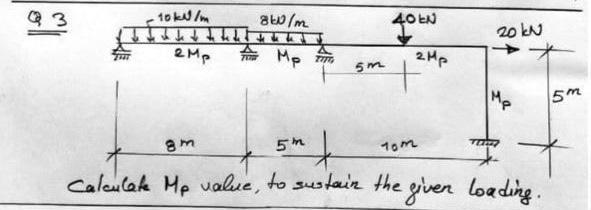 Q3
10 kN/m 8kN/m 40 kN 20 kN
2Mp Mp 5m 2Mp
Mp 5m
8m 5m 10m
Calculate Mp value, to sustain the given loading.